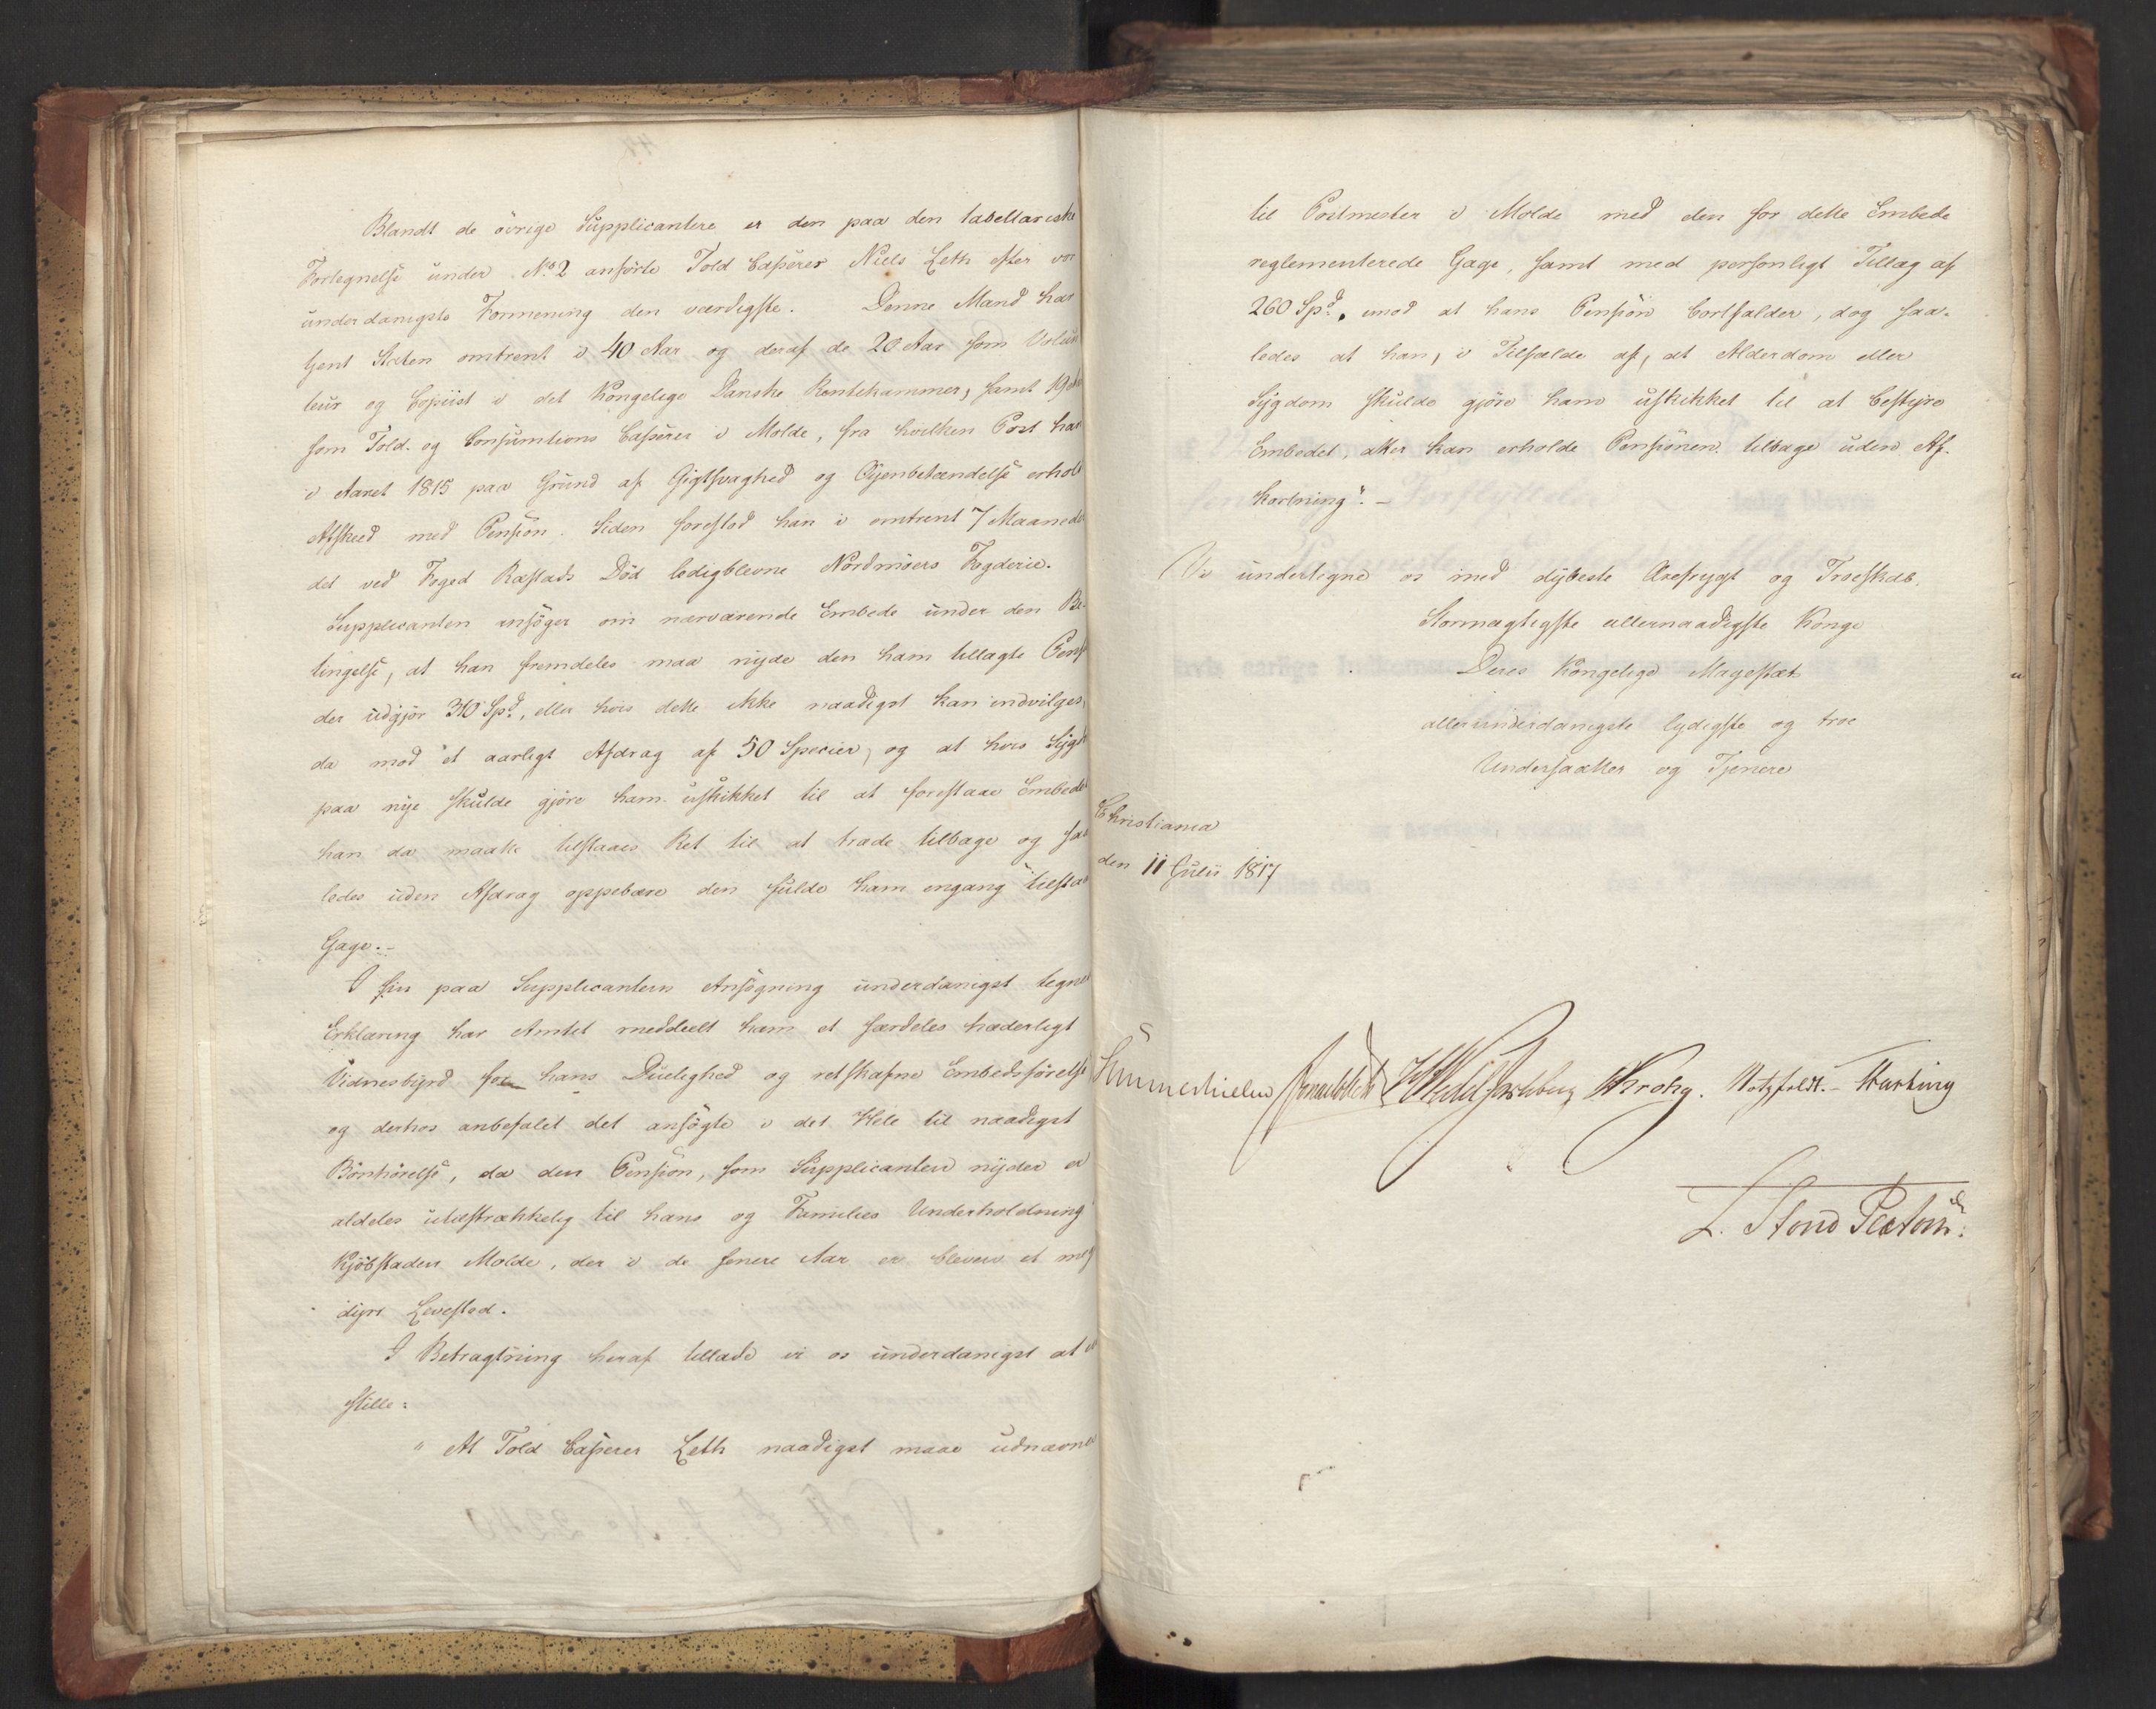 Blandt de övrige Supplicantere er den paa den tabellariske
Fortegnelse under No 2 anførte Told Casserer Niels Leth efter vor
underdanigste Formening den værdigste. Denne Mand har
tjent Staten omtrent i 40 Aar og deraf de 20 Aar som Volun
teur og Copiist i det Kongelige Danske Rentekammer, samt 19
som Told- og Consumtions Casserer i Molde, fra hvilken Post han
i Aaret 1815 paa Grund af Gigtsvaghed og Øyenbetændelse erholdt
Afskeed med Pension. Siden forestod han i omtrent 7 Maaneder
det ved Foged Ræstads Död ledigblevne Nordmöers Fogderie.
Supplicanten ansöger om nærværende Embede under den Be-
tingelse, at han fremdeles maa nyde den ham tillagte Pens
der udgjör 310 Spd., eller hvis dette ikke naadigst kan indvilges,
da mod et aarligt Afdrag af 50 Specier, og at hvis Sygd
paa nye skulde gjöre ham uskikket til at forestaae Embedet
han da maatte tilstaaes Ret til at træde tilbage og saa
ledes uden Afdrag oppebære den fulde ham engang tilstaa
Gage.-
I sin paa Supplicantens Ansögning underdanigst tegne
Erklæring har Amtet meddeelt ham et særdeles hæderligt
Vidnesbyrd for hans Duelighed og retskafne Embedsförelse
og derhos anbefalet det ansögte i det Hele til naadigst
Bönhörelse, da den Pension, som Supplicanten nyder er
aldeles utilstrækkelig til hans og Families Underholdning
Kjöbstaden Molde, der i de senere Aar er bleven et meg
dyrt Levested.
I Betragtning heraf tillade vi os underdanigst at
stille:
" At Told Casserer Leth naadigst maae udnævnes
til Postmester i Molde med den for dette Embede
reglementerede Gage, samt med personligt Tillæg af
260 Spd. imod at hans Pension bortfalder, dog saa-
ledes at han, i Tilfælde af, at Alderdom eller
Sygdom skulde gjöre ham uskikket til at bestyre
Embedet, atter kan erholde Pensionen tilbage uden Af-
kortning". -
Vi undertegne os med dybeste Ærefrygt og Troeskab,
Stormægtigste allernaadigste Konge
Deres Kongelige Majestæts
allerunderdanigste lydigste og troe
Undersaatter og Tjenere
Christiania
den 11 Julii 1817
Sommerhielm HWedel Jarlsberg Krohg. Motzfeldt. - Hartwig
L. Stoud Platou